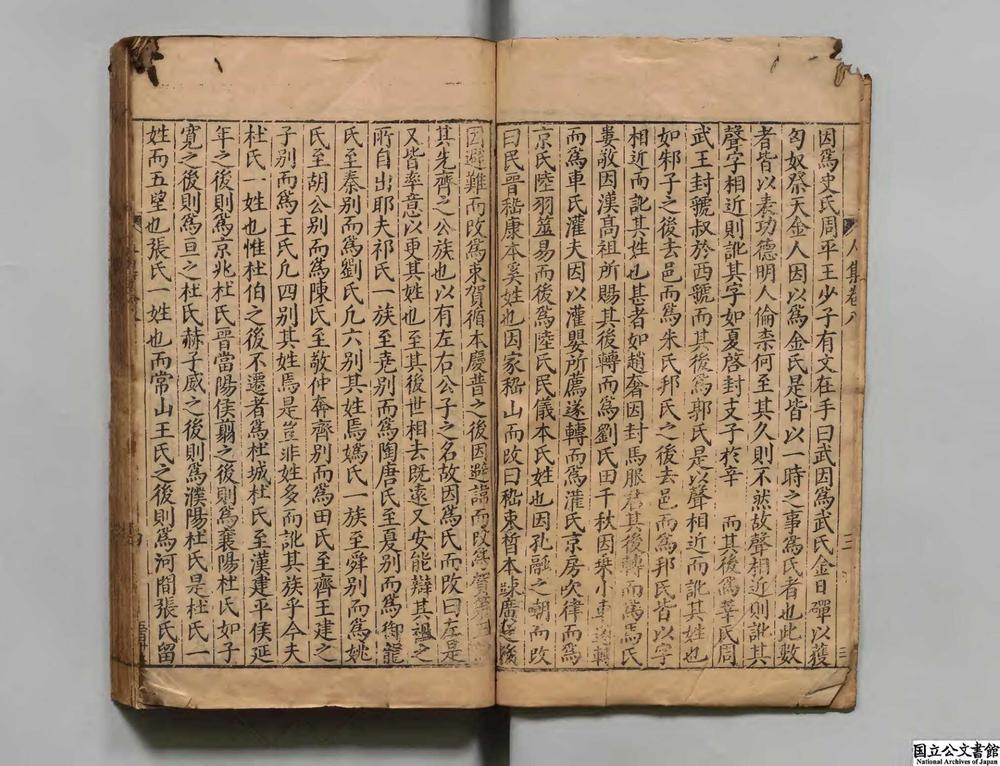 因爲史氏周平王少子有文在手曰武因爲武氏金日磾以獲
匈奴祭天金人因以爲金氏是皆以一時之事爲氏者也此數
者皆以表功德明人倫柰何至其久則不然故聲相近則訛其
聲字相近則訛其字如夏啓封支子於辛而其後爲莘氏周
武王封虢叔於西虢而其後爲郭氏是以聲相近而訛其姓也
如邾子之後去邑而爲朱氏邦氏之後去邑而爲邦氏皆以字
相近而訛其姓也甚者如趙奢因封馬服君其後轉而爲馬氏
婁敬因漢高祖所賜其後轉而爲劉氏田千秋因乘小車遂轉
而爲車氏灌夫因以灌嬰所薦遂轉而爲灌氏京房吹律而爲
京氏陸羽筮易而後爲陸氏民儀本氏姓也因孔融之嘲而改
曰民晉嵇康本奚姓也因家嵇山而改曰嵇束晳本踈廣後
因避難而改爲束賀循本慶普之後因避諱而改爲賀
其先齊之公族也以有左右公子之名故因爲氏而改曰左是
又皆率意以更其姓也至其後世相去旣遠又安能辯其禋之
所自出耶夫祁氏一族至堯別而爲陶唐氏至夏別而爲御龍
氏至秦別而爲劉氏凡六別其姓焉嬀氏一族至舜別而爲姚
氏至胡公別而爲陳氏至敬仲奔齊別而爲田氏至齊王建之
子別而爲王氏凡四別其姓焉是豈非姓多而訛其族乎今夫
杜氏一姓也惟杜伯之後不遷者爲杜城杜氏至漢建平侯延
年之後則爲京兆杜氏晉當陽侯預之後則爲襄陽杜氏如子
寬之後則爲亘之杜氏赫子威之後則爲濮陽杜氏是杜氏一
姓而五望也張氏一姓也而常山王氏之後則爲河間張氏留
人集卷八
国立公文書館
National Archives of Japan